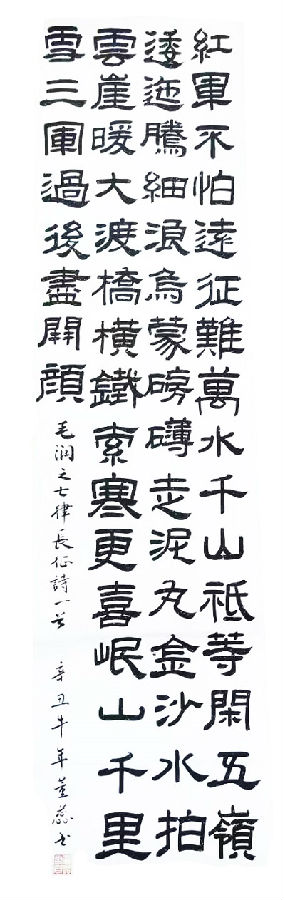 紅軍不怕遠征難萬水千山祗等閑五嶺
逶迤騰細浪烏蒙磅礴走泥丸金沙水拍
雲崖暖大渡橋橫鐵索寒更喜岷山千里
雪三軍過後盡開顏
毛润之七律長征詩一首 辛丑牛年董蕊书